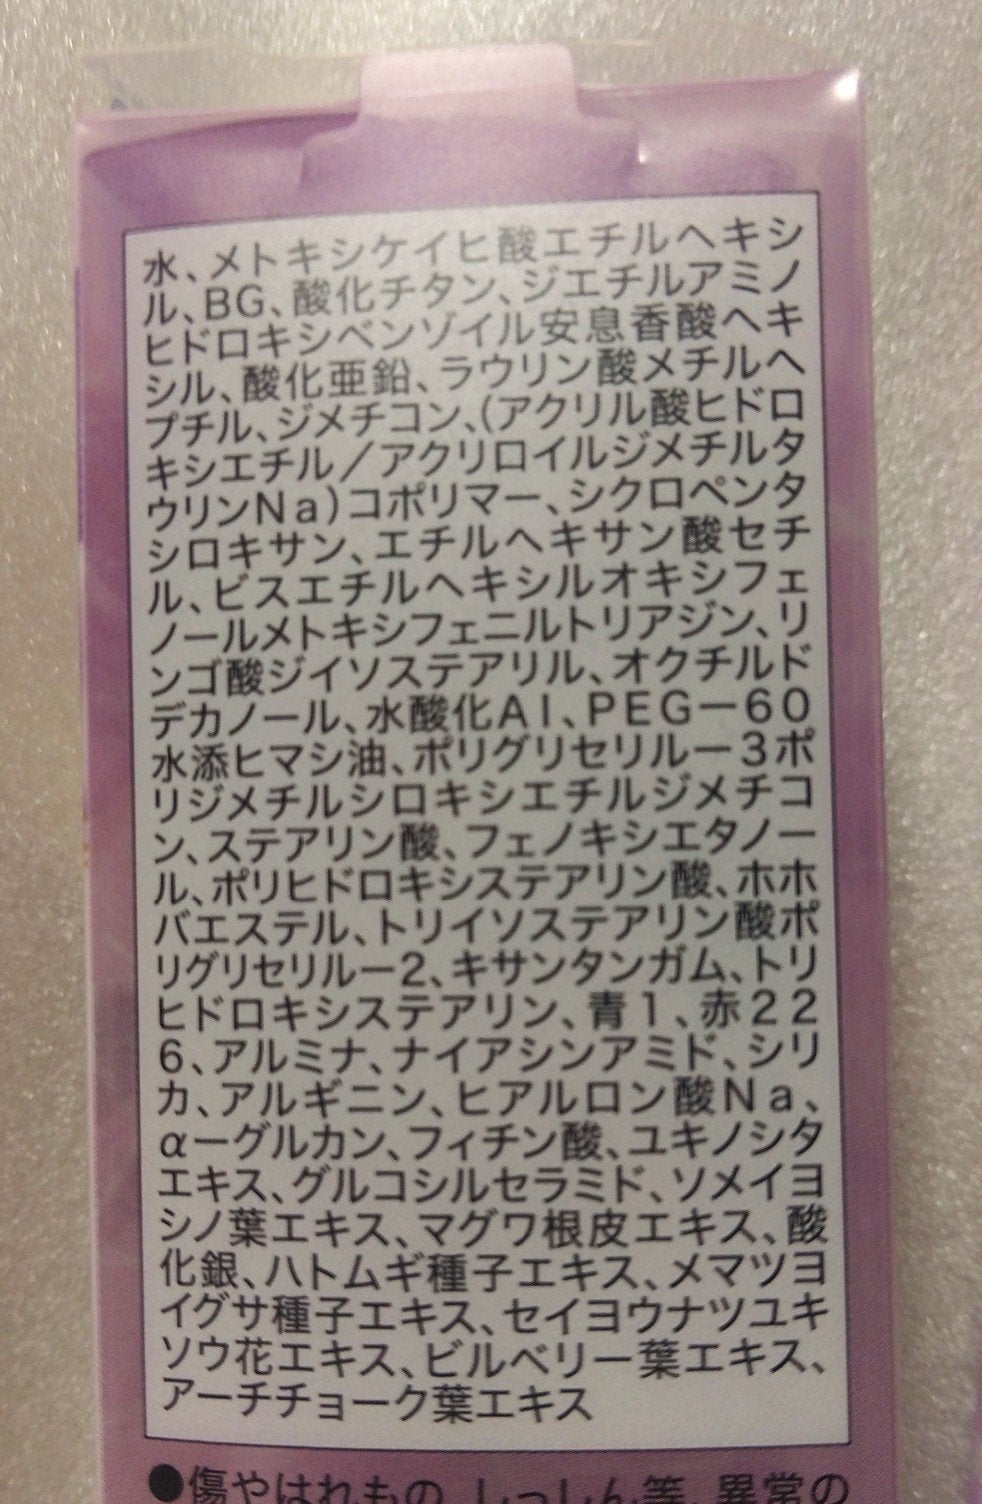 水、メトキシケイヒ酸エチルヘキシ
ル、BG、酸化チタン、ジエチルアミノ
ヒドロキシベンゾイル安息香酸ヘキ
シル、酸化亜鉛、ラウリン酸メチルヘ
プチル、ジメチコン、(アクリル酸ヒドロ
キシエチル/アクリロイルジメチルタ
ウリンNa)コポリマー、シクロペンタ
シロキサン、エチルヘキサン酸セチ
ル、ビスエチルヘキシルオキシフェ
ノールメトキシフェニルトリアジン、リ
ンゴ酸ジイソステアリル、オクチルド
デカノール、水酸化Al、PEG－60
水添ヒマシ油、ポリグリセリル－3ポ
リジメチルシロキシエチルジメチコ
ン、ステアリン酸、フェノキシエタノー
ル、ポリヒドロキシステアリン酸、ホホ
バエステル、トリイソステアリン酸ポ
リグリセリル－2、キサンタンガム、トリ
ヒドロキシステアリン、青1、赤22
6、アルミナ、ナイアシンアミド、シリ
カ、アルギニン、ヒアルロン酸Na、
α－グルカン、フィチン酸、ユキノシタ
エキス、グルコシルセラミド、ソメイヨ
シノ葉エキス、マグワ根皮エキス、酸
化銀、ハトムギ種子エキス、メマツヨ
イグサ種子エキス、セイヨウナツユキ
ソウ花エキス、ビルベリー葉エキス、
アーチチョーク葉エキス
●傷やはれもの、しっしん等、異常の